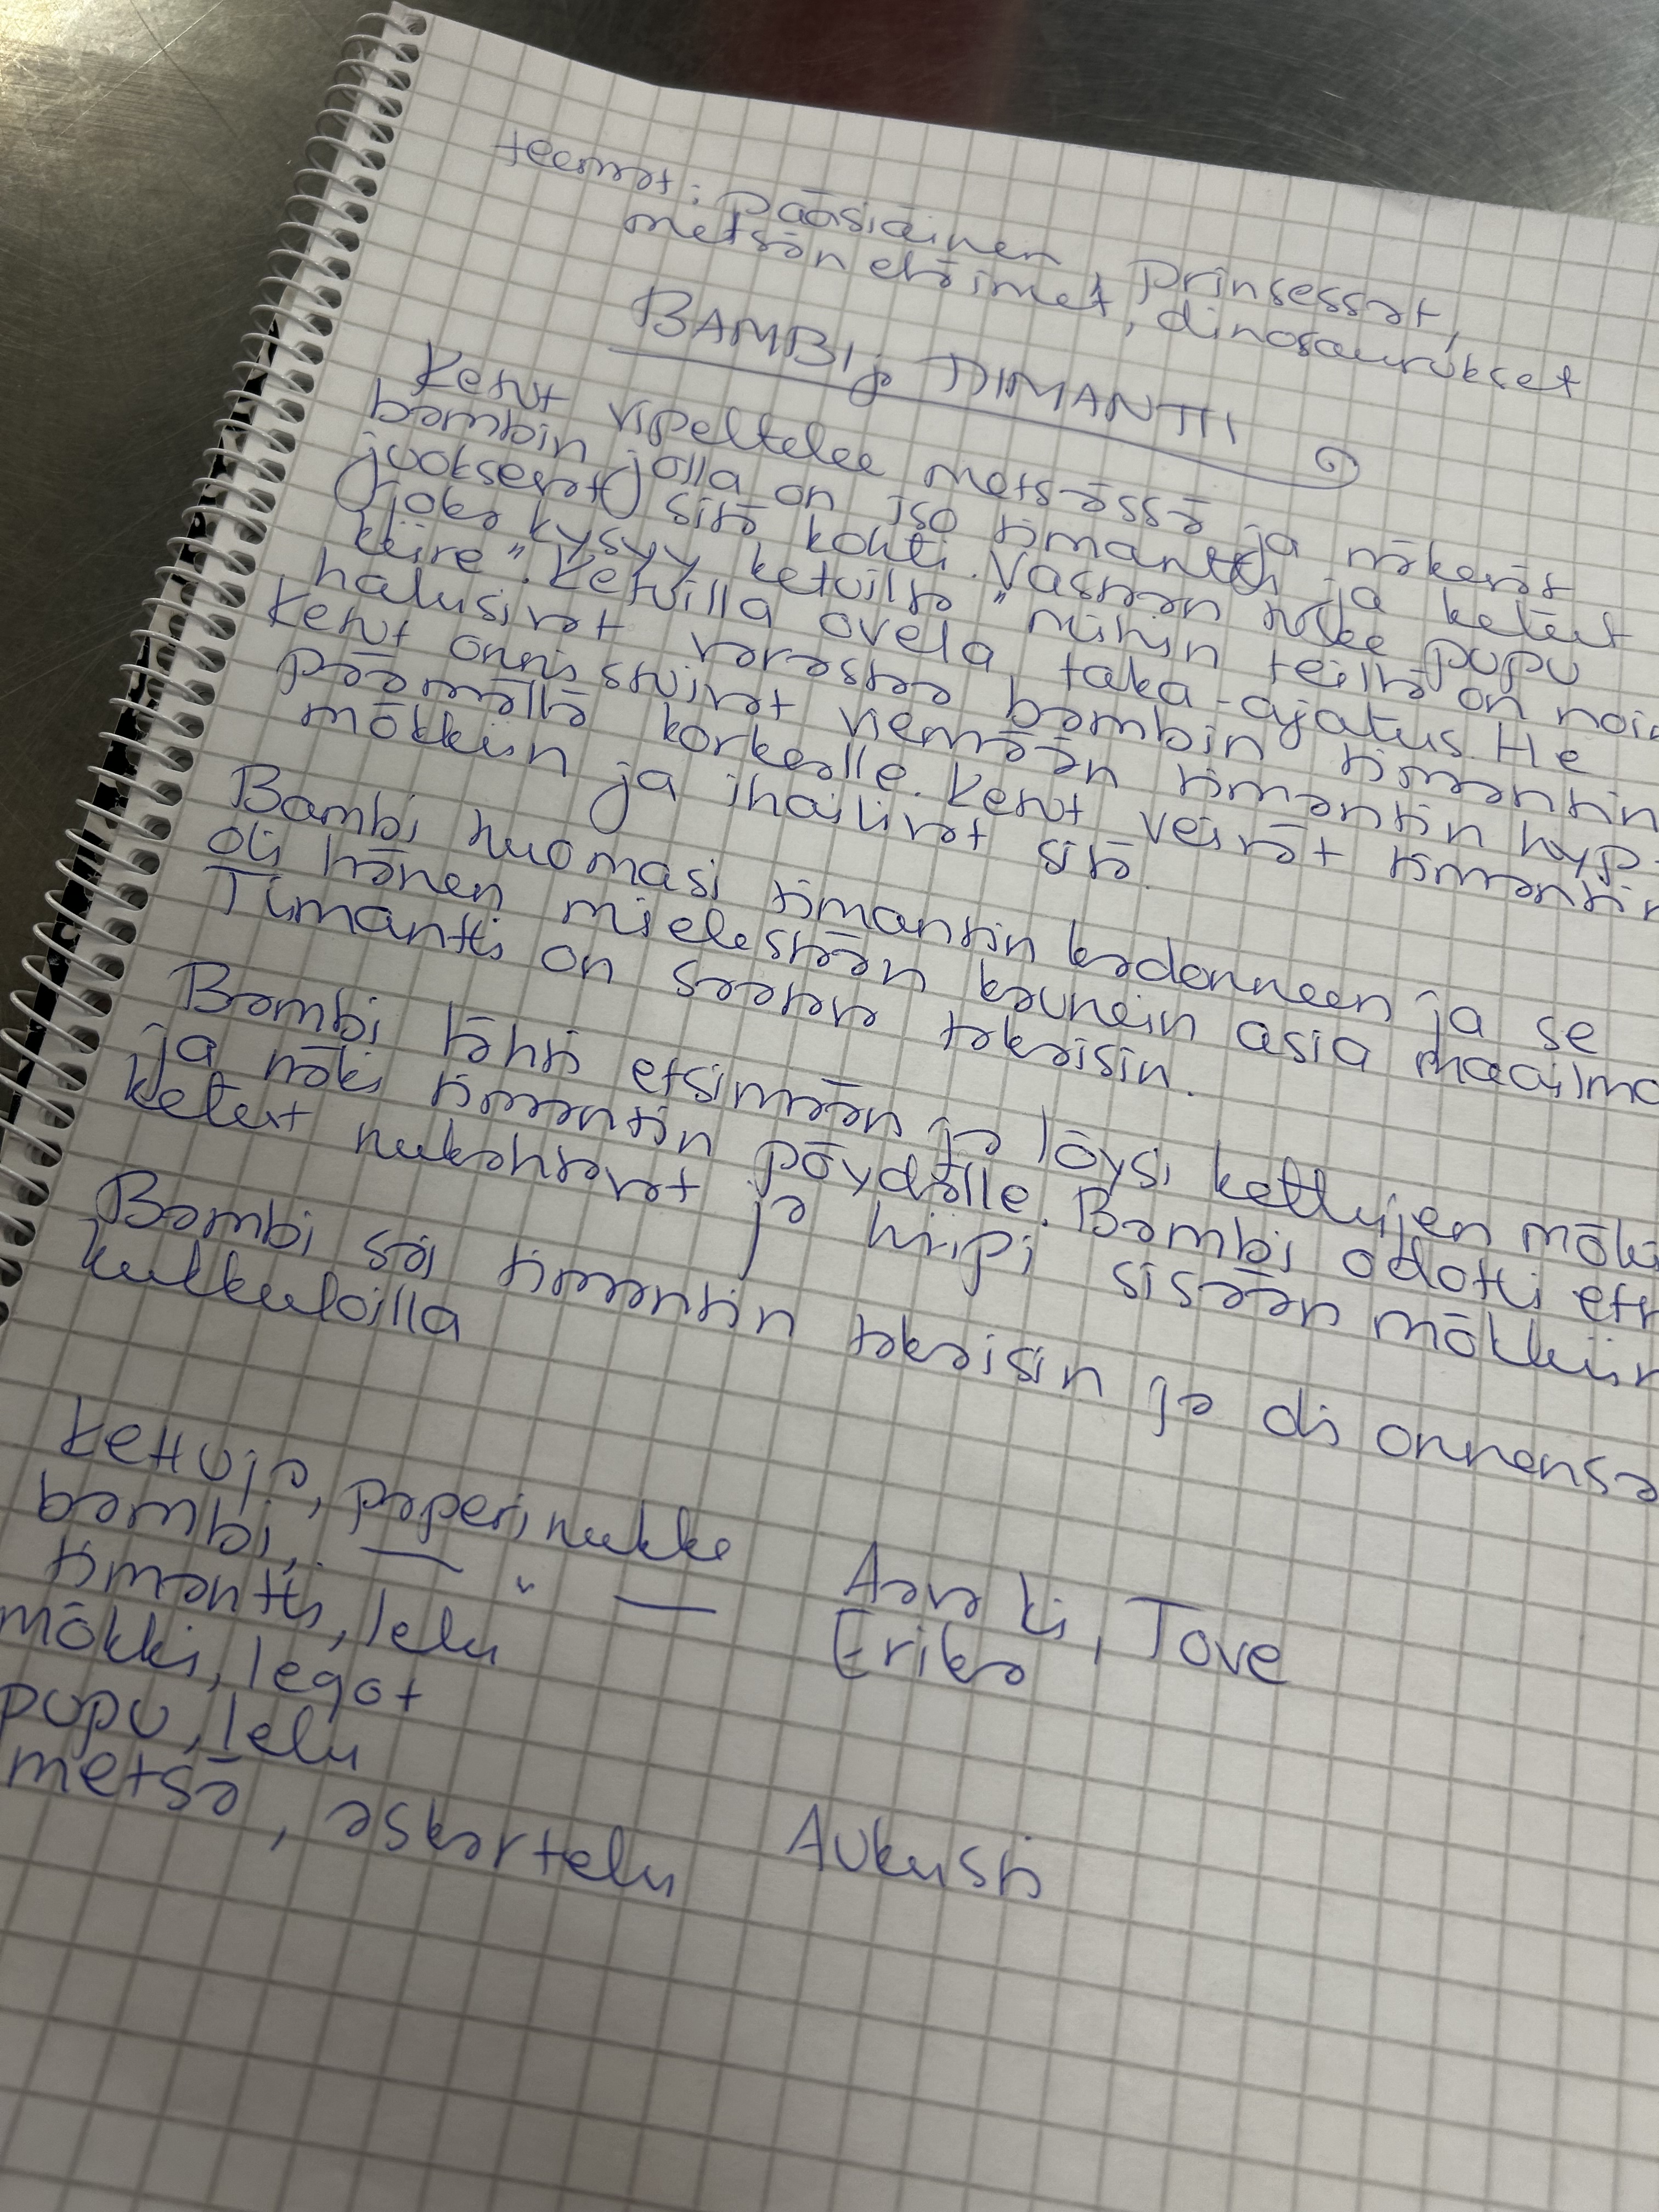 teemat: pääsiäinen, prinsessat,
metsän eläimet, dinosaurukset
BAMBI ja TIMANTTI
Ketut vipeltelee metsässä ja näkevät
bambin jolla on iso timantti ja ketut
juoksevat sitä kohti. Vastaan tulee pupu
joka kysyy ketuilta "mihin teillä on noin
kiire". Ketuilla ovela taka-ajatus. He
halusivat varastaa bambin timantin
Ketut onnistuivat viemään timantin hyp-
päämällä korkealle. Ketut veivät timantin
mökkiin ja ihailivat sitä.
Bambi huomasi timantin kadonneen ja se
oli hänen mielestään kaunein asia maailma
Timantti on saatava takaisin.
Bambi lähti etsimään ja löysi kettujen möki
ja näki timantin pöydälle. Bambi odotti ett
ketut nukahtavat ja hiipi sisään mökkiin
Bambi sai timantin takaisin ja oli onnensa
kukkuloilla
kettuja, paperinukke
bambi, — " —
timantti, lelu
mökki, legot
pupu, lelu
metsä, askartelu
Aava ki, Tove
Erika
Aukusti